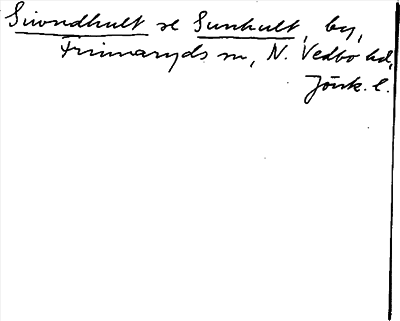 Siwndhult se Sunhult, by,
Frinnaryds sn, N. Vedbo hd,
Jönk. l.